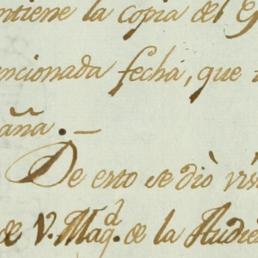 ntiene la copia del G
encionada fecha, que
aña. —
De esto se diò vis
de V. Magd. de la Audie